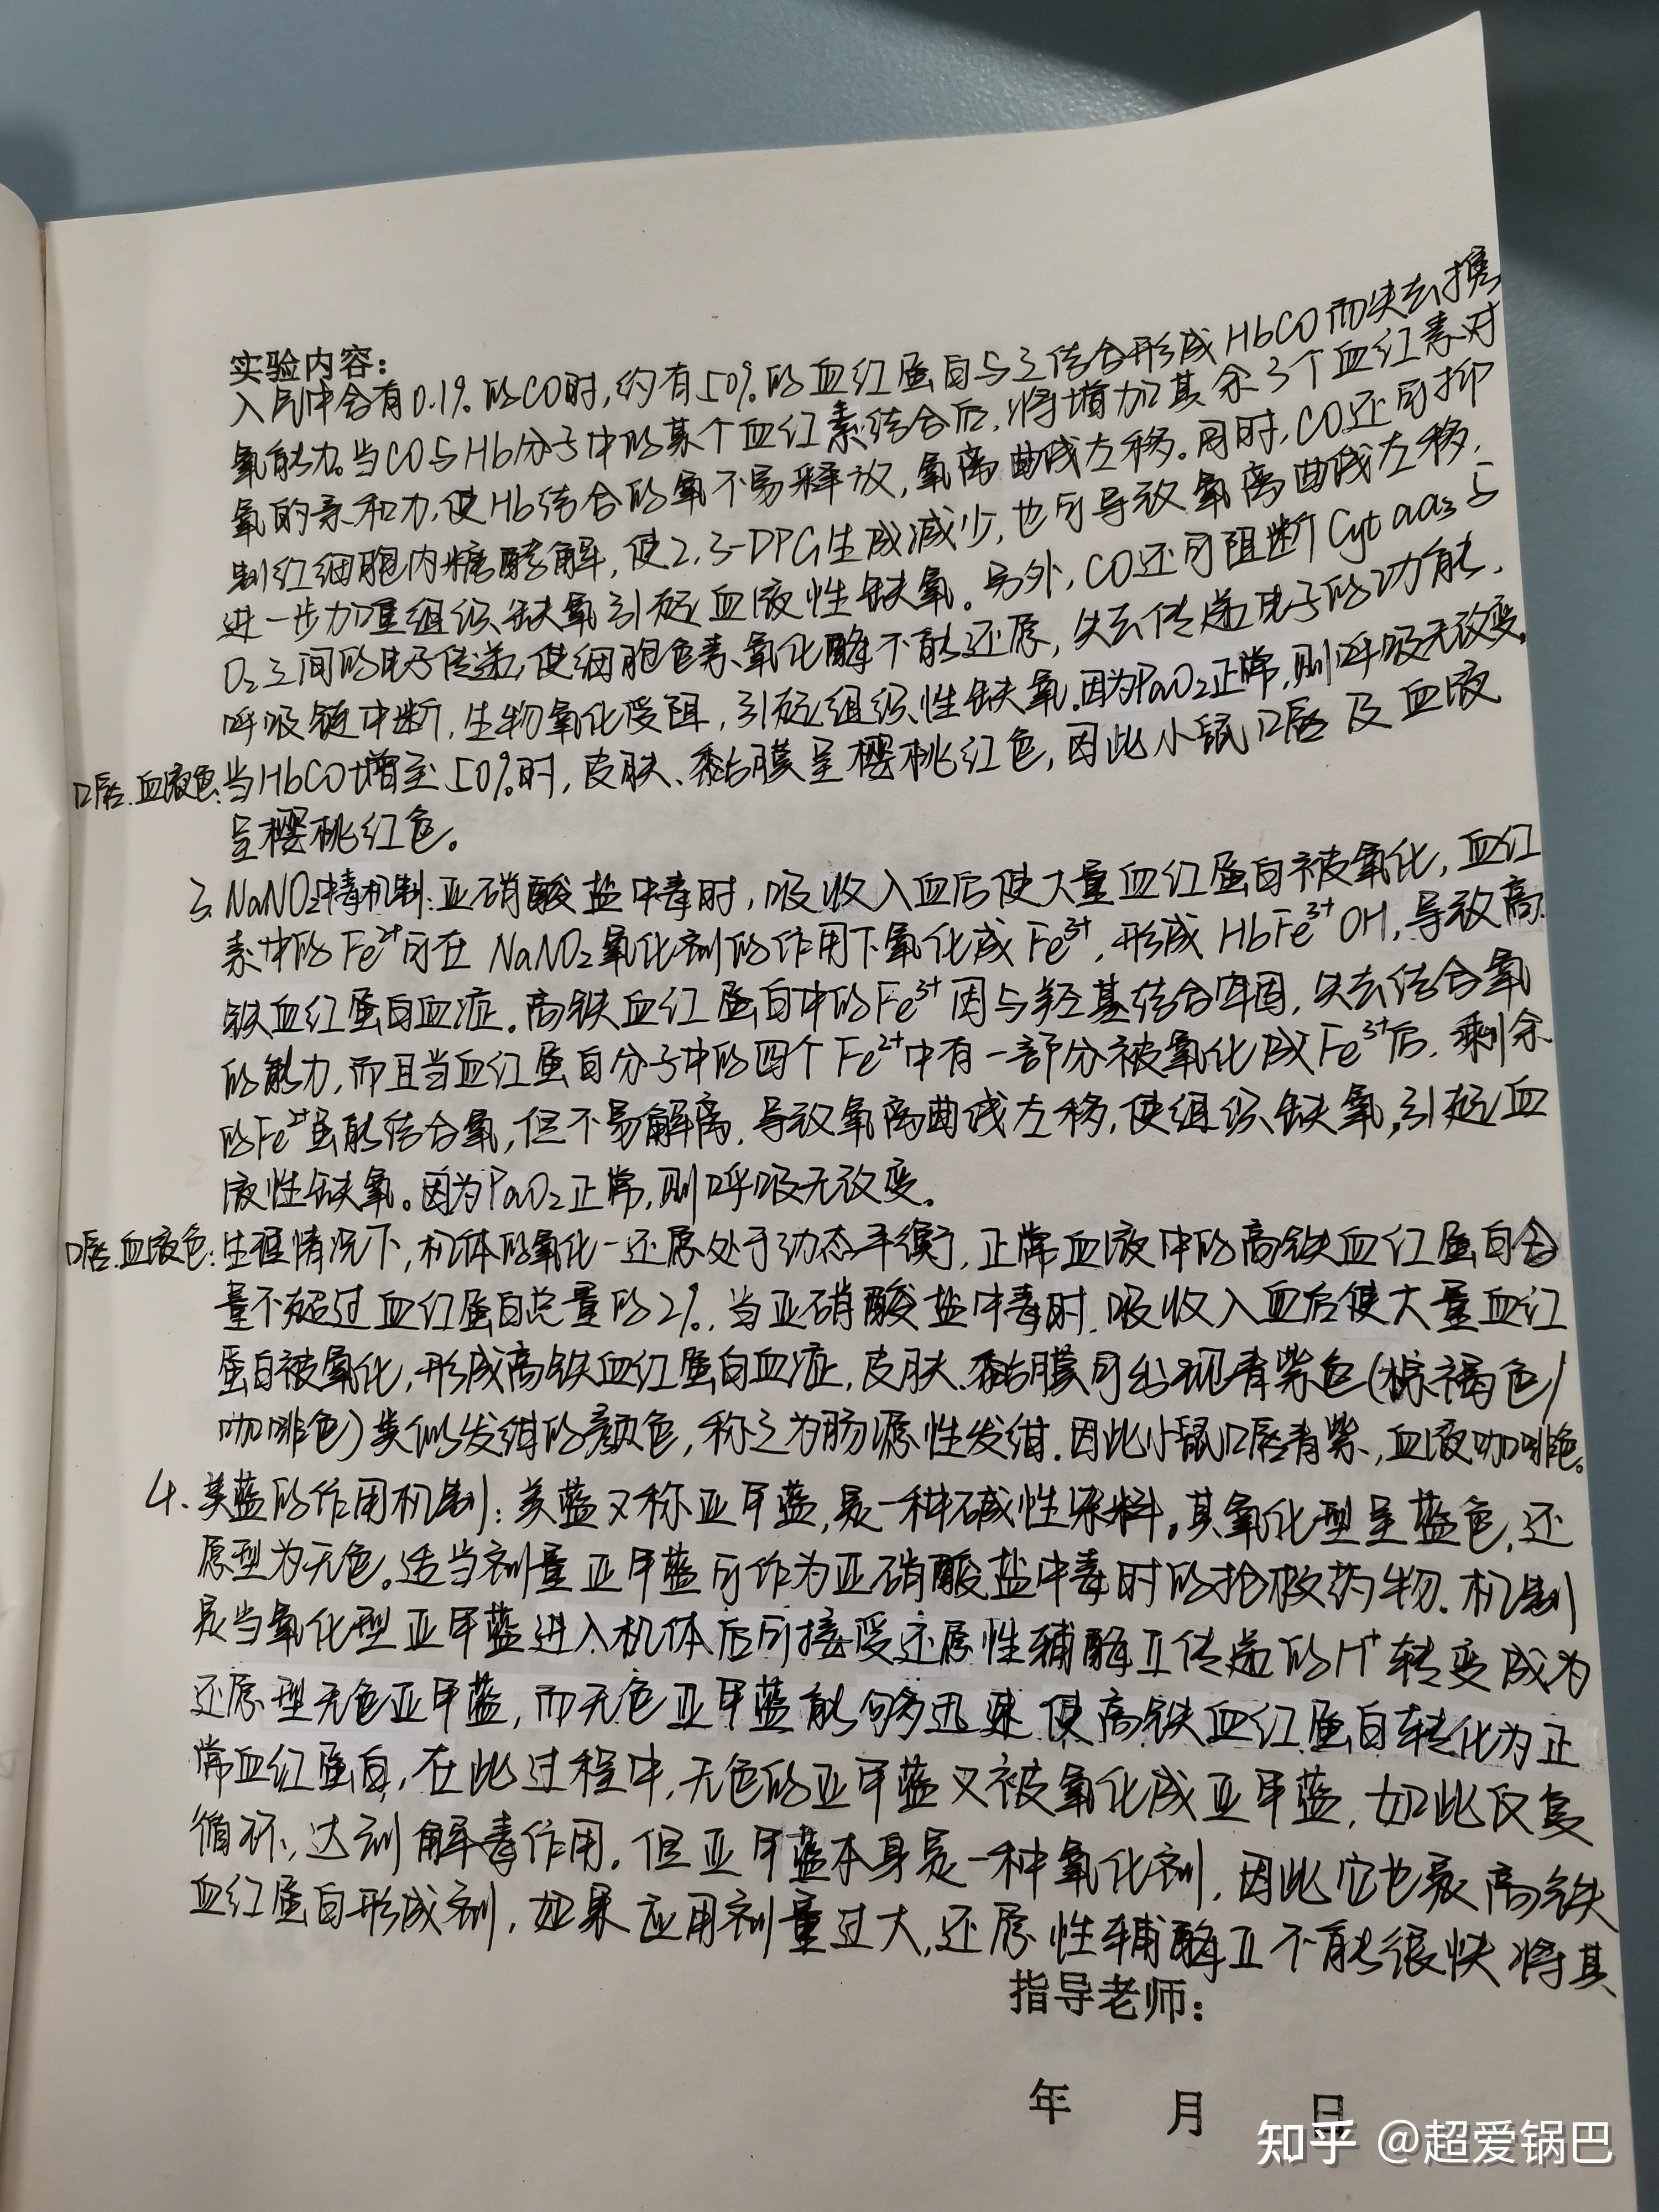 实验内容：
入气中含有0.1%的CO时,约有50%的血红蛋白与之结合形成HbCO而失去携
氧能力。当CO与Hb分子中的某个血红素结合后,将增加其余3个血红素对
氧的亲和力,使Hb结合的氧不易释放,氧离曲线左移。同时,CO还可抑
制红细胞内糖酵解,使2,3-DPG生成减少,也可导致氧离曲线左移,
进一步加重组织缺氧引起血液性缺氧。另外,CO还可阻断Cyt aa3与
O₂之间的电子传递,使细胞色素、氧化酶不能还原,失去传递电子的功能,
呼吸链中断,生物氧化受阻,引起组织性缺氧.因为PaO₂正常,则呼吸无改变.
口唇.血液色:当HbCO增至50%时,皮肤、黏膜呈樱桃红色,因此小鼠口唇及血液
呈樱桃红色。
3.NaNO₂中毒机制:亚硝酸盐中毒时,吸收入血后使大量血红蛋白被氧化,血红
素中的Fe²⁺可在NaNO₂氧化剂的作用下氧化成Fe³⁺,形成HbFe³⁺OH,导致高
铁血红蛋白血症。高铁血红蛋白中的Fe³⁺因与羟基结合牢固,失去结合氧
的能力,而且当血红蛋白分子中的四个Fe²⁺中有一部分被氧化成Fe³⁺后,剩余
的Fe²⁺虽能结合氧,但不易解离,导致氧离曲线左移,使组织缺氧,引起血
液性缺氧。因为PaO₂正常,则呼吸无改变。
口唇.血液色:生理情况下,机体的氧化-还原处于动态平衡,正常血液中的高铁血红蛋白含
量不超过血红蛋白总量的2%.当亚硝酸盐中毒时.吸收入血后使大量血红
蛋白被氧化,形成高铁血红蛋白血症,皮肤.黏膜可出现青紫色(棕褐色/
咖啡色)类似发绀的颜色,称之为肠源性发绀.因此小鼠口唇青紫,血液咖啡色。
4.美蓝的作用机制:美蓝又称亚甲蓝,是一种碱性染料。其氧化型呈蓝色,还
原型为无色。适当剂量亚甲蓝可作为亚硝酸盐中毒时的抢救药物.机制
是当氧化型亚甲蓝进入机体后可接受还原性辅酶Ⅱ传递的H⁺转变成为
还原型无色亚甲蓝,而无色亚甲蓝能够迅速使高铁血红蛋白转化为正
常血红蛋白,在此过程中,无色的亚甲蓝又被氧化成亚甲蓝,如此反复
循环,达到解毒作用。但亚甲蓝本身是一种氧化剂,因此它也是高铁
血红蛋白形成剂,如果应用剂量过大,还原性辅酶Ⅱ不能很快将其
指导老师：
年 月 日
知乎 @超爱锅巴